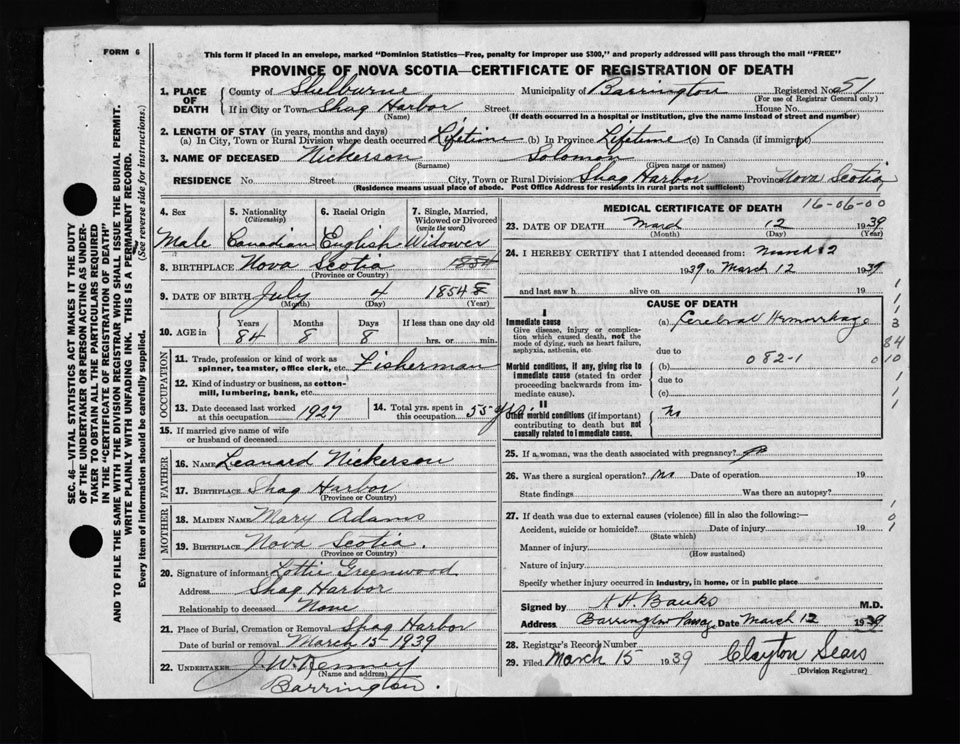 FORM 6
This form if placed in an envelope, marked "Dominion Statistics—Free, penalty for improper use $300," and properly addressed will pass through the mail "FREE"
PROVINCE OF NOVA SCOTIA—CERTIFICATE OF REGISTRATION OF DEATH
1. PLACE OF DEATH County of Shelburne Municipality of Barrington Registered No. 51
(For use of Registrar General only)
If in City or Town Shag Harbor Street House No.
(Name) (If death occurred in a hospital or institution, give the name instead of street and number)
2. LENGTH OF STAY (in years, months and days)
(a) In City, Town or Rural Division where death occurred Lifetime (b) In Province Lifetime (c) In Canada (if immigrant)
3. NAME OF DECEASED Nickerson Solomon
(Surname) (Given name or names)
RESIDENCE No. Street City, Town or Rural Division Shag Harbor Province Nova Scotia
(Residence means usual place of abode. Post Office Address for residents in rural parts not sufficient)
SEC. 46—VITAL STATISTICS ACT MAKES IT THE DUTY
OF THE UNDERTAKER OR PERSON ACTING AS UNDER-
TAKER TO OBTAIN ALL THE PARTICULARS REQUIRED
IN THE "CERTIFICATE OF REGISTRATION OF DEATH"
AND TO FILE THE SAME WITH THE DIVISION REGISTRAR WHO SHALL ISSUE THE BURIAL PERMIT.
WRITE PLAINLY WITH UNFADING INK. THIS IS A PERMANENT RECORD.
Every item of information should be carefully supplied. (See reverse side for instructions.)
4. Sex 5. Nationality 6. Racial Origin 7. Single, Married,
(Citizenship) Widowed or Divorced
(write the word)
Male Canadian English Widower
8. BIRTHPLACE Nova Scotia 1854
(Province or Country)
9. DATE OF BIRTH July 4 1854
(Month) (Day) (Year)
10. AGE in Years Months Days If less than one day
84 8 8 hrs. or min.
OCCUPATION
11. Trade, profession or kind of work as
spinner, teamster, office clerk, etc. Fisherman
12. Kind of industry or business, as cotton-
mill, lumbering, bank, etc.
13. Date deceased last worked at this occupation 1927 14. Total yrs. spent in this occupation 55 yrs.
15. If married give name of wife
or husband of deceased
FATHER
16. NAME Leanard Nickerson
17. BIRTHPLACE Shag Harbor
(Province or Country)
MOTHER
18. MAIDEN NAME Mary Adams
19. BIRTHPLACE Nova Scotia.
(Province or Country)
20. Signature of informant Lottie Greenwood
Address Shag Harbor
Relationship to deceased None
21. Place of Burial, Cremation or Removal Shag Harbor
Date of burial or removal March 15-1939
22. UNDERTAKER J. W. Kenney
(Name and address)
Barrington.
MEDICAL CERTIFICATE OF DEATH 16-06-00
23. DATE OF DEATH March 12 1939
(Month) (Day) (Year)
24. I HEREBY CERTIFY that I attended deceased from: March 2
1939 to March 12 1939
and last saw h alive on 19
CAUSE OF DEATH
I
Immediate cause (a) Cerebral Hemorrhage
Give disease, injury or complica-
tion which caused death, not the
mode of dying, such as heart failure,
asphyxia, asthenia, etc due to
082-1
Morbid conditions, if any, giving rise to (b)
immediate cause (stated in order due to
proceeding backwards from im-
mediate cause). (c)
II
Other morbid conditions (if important) no
contributing to death but not
causally related to immediate cause.
1
1
3
84
010
1
1
1
25. If a woman, was the death associated with pregnancy?
26. Was there a surgical operation? no Date of operation 19
State findings Was there an autopsy?
27. If death was due to external causes (violence) fill in also the following:—
Accident, suicide or homicide? Date of injury 19
(State which)
Manner of injury
(How sustained)
Nature of injury
Specify whether injury occurred in industry, in home, or in public place
1
0
1
Signed by H. H. Banks M.D.
Address Barrington Passage Date March 12 1939
28. Registrar's Record Number
29. Filed March 15 1939 Clayton Sears
(Division Registrar)